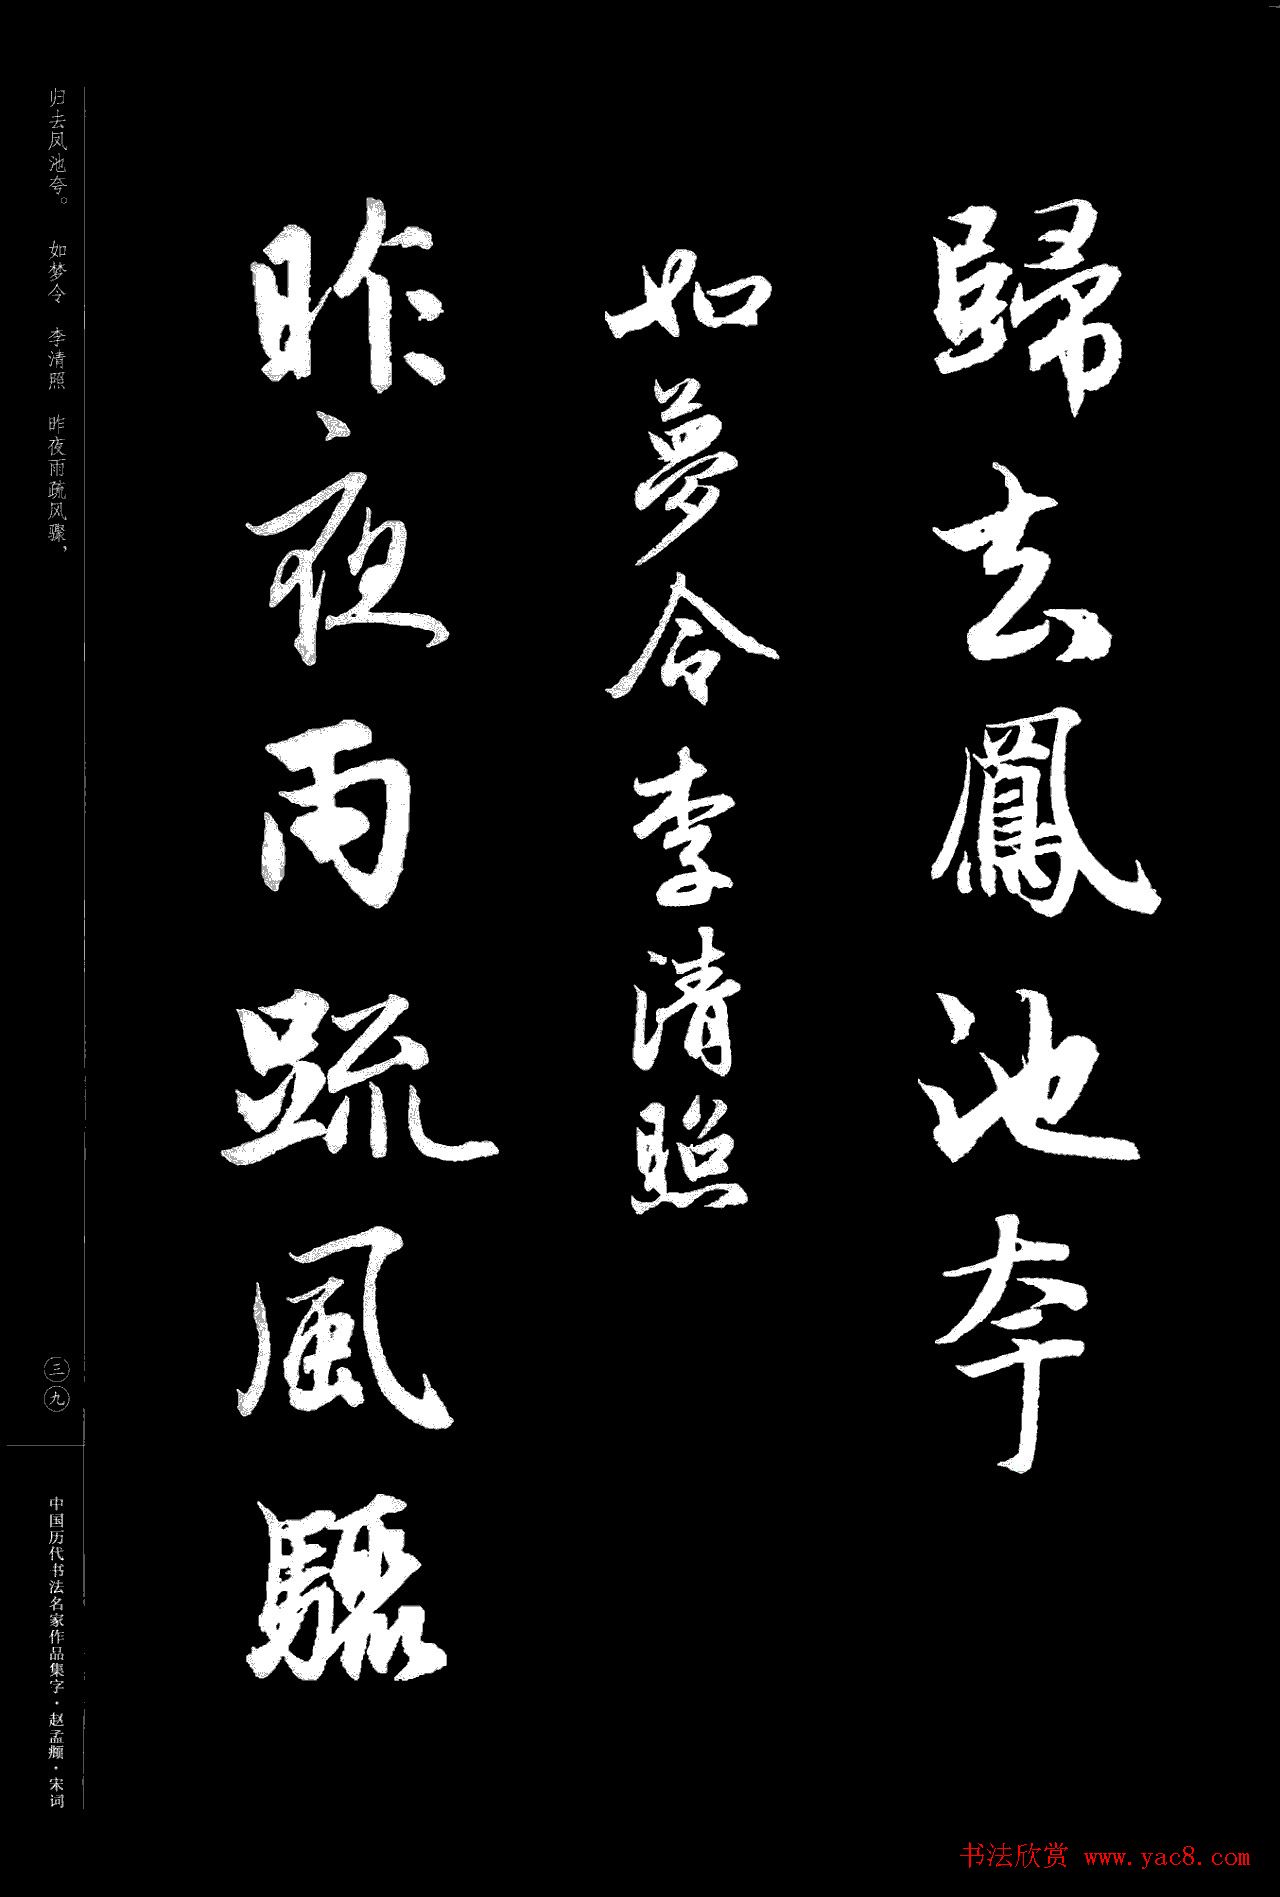 歸去鳳池夸
如夢令李清照
昨夜雨疏風驟
归去凤池夸。 如梦令 李清照 昨夜雨疏风骤，
三九
中国历代书法名家作品集字·赵孟頫·宋词
书法欣赏 www.yac8.com